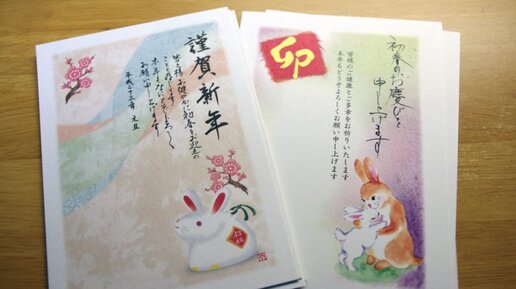 謹賀新年
皆々様お健やかに初春をお迎えの
ことと存じます
本年もなにとぞよろしく
お願い申し上げます
平成二十三年 元旦
卯
初春のお慶びを
申し上げます
皆様のご健康とご多幸をお祈りいたします
本年もどうぞよろしくお願い申し上げます